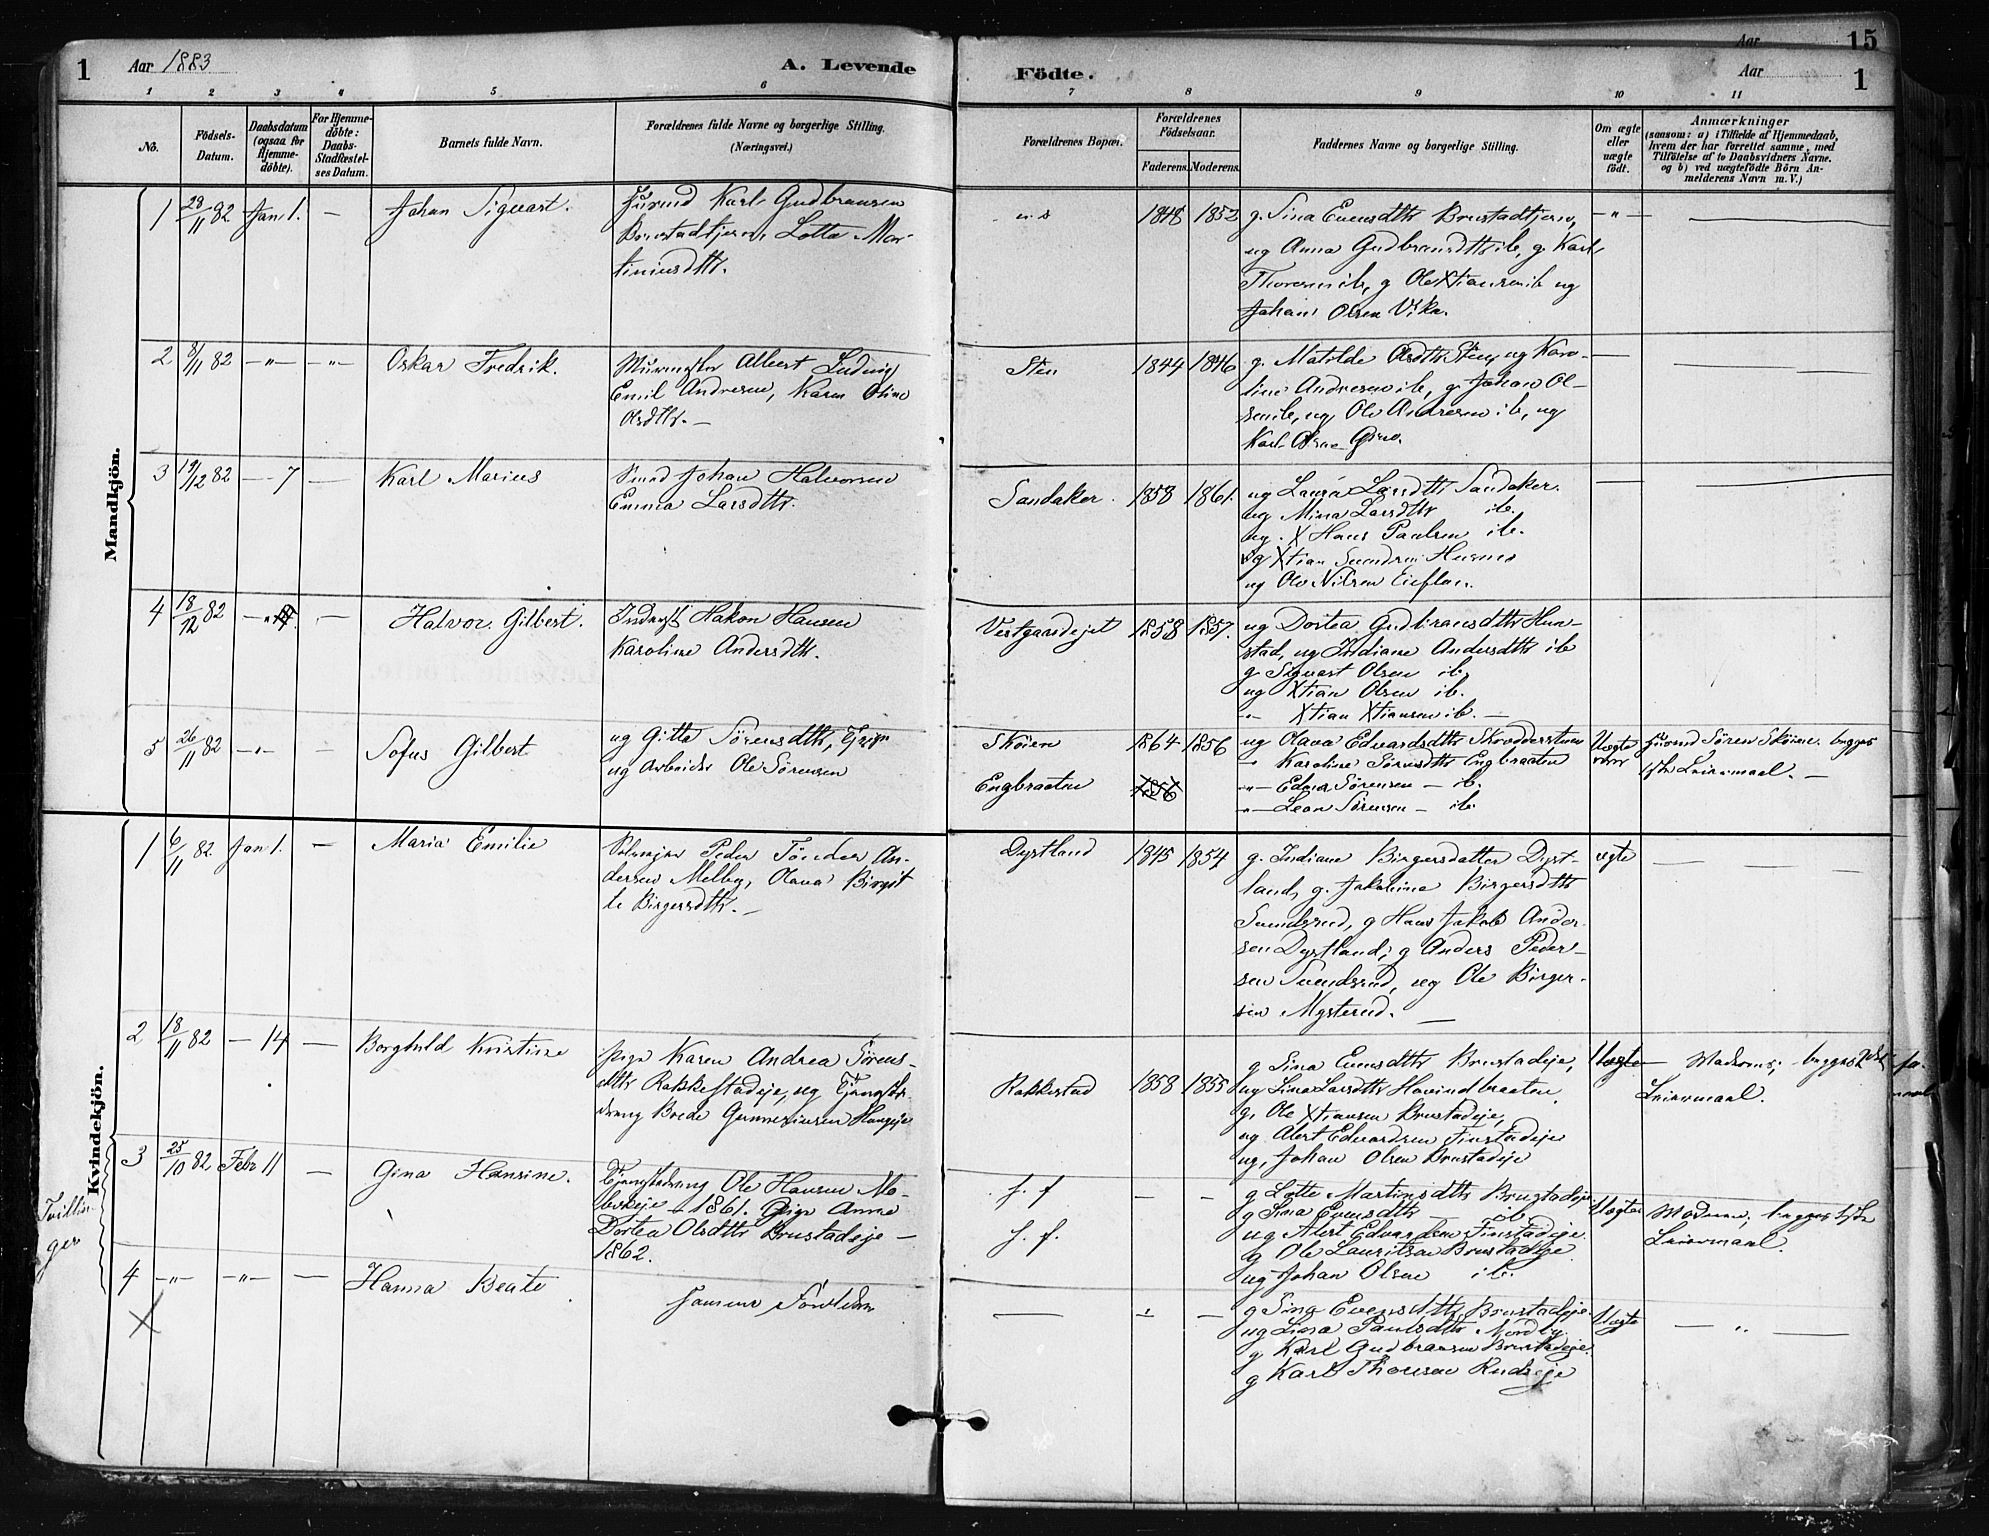 1 Aar 1883 A. Levende Födte. Aar 15
Aar 1
1 2 3 4 5 6 7 8 9 10 11
No. Födsels-Datum. Daabsdatum (ogsaa for Hjemme-döbte). For Hjemme-döbte: Daabs-Stadfæstel-ses Datum. Barnets fulde Navn. Forældrenes fulde Navne og borgerlige Stilling. (Næringsvei.) Forældrenes Bopæl. Forældrenes Födselsaar. Faderens. Moderens. Faddernes Navne og borgerlige Stilling. Om ægte eller uægte födt. Anmærkninger (saasom: a) i Tilfælde af Hjemmedaab, hvem der har forrettet samme, med Tilföielse af to Daabsvidners Navne, og b) ved uægtefödte Börn An-melderens Navn m. V.)
Mandkjön.
1 28/11 82 Jan 1. — Johan Sigvart.
Husmd Karl Gudbransen
Brustadtjern, Lotta Mar-
tiniusdtr.
1848 1852
g. Sina Evensdtr Brustadtjern,
ug Anna Gudbransdtr ib, g. Karl
Thoresen ib, g Ole Xtiansen ib ug
Johan Olsen Vika.
2 8/11 82 —"— —"— Oskar Fredrik.
Murmester Albert Ludvig
Emil Andresen, Karen Oline
Olsdtr. —
Sten 1844 1846
g. Matilde Olsdtr Sten, ug Karo-
line Andresen ib, g. Johan Ol-
sen ib, ug Ole Andresen ib, ug
Karl Olsen
3 19/12 82 — 7 — Karl Marius
Smed Johan Halvorsen
Emma Larsdtr.
Sandaker. 1858 1861.
ug Laura Larsdtr Sandaker.
ug Mina Larsdtr ib.
ug. X Hans Paulsen ib.
ug Xtian Svendsen Husmo
ug Ole Nilsen
4 18/12 82 — Halvor Gilbert.
Inderst Hakon Hansen
Karoline Andersdtr.
Vestgaardejet 1858 1857.
ug Dortea Gudbransdtr Hun-
stad, ug Indiane Andersdtr ib
g Sigvart Olsen ib,
ug Xtian Olsen ib.
—"— Xtian Xtiansen ib. —
5 26/11 82 —"— — Sofus Gilbert
ug Gitta Sörensdtr, Tj.pige
ug Arbeider Ole Sörensen
Sköien 1864 1856
Engbraaten 1856
ug Olava Edvardsdtr Skrædderstuen
— Karoline Sörensdtr Engbraaten
—"— Edvar Sörensen — ib.
—"— Lean Sörensen — ib.
Uægte
Husmd Sören Sköien. begges
1ste Leiermaal. —
Kvindekjön.
1 6/11 82. Jan 1. — Maria Emilie
Selveejer Peder Tönder An-
dersen Melby, Olava Birgit
te Birgersdtr. —
Dystland 1845 1854
g. Indiane Birgersdatter Dyst-
land, g. Jakobine Birgersdtr
Svendsrud, g Hans Jakob Ander-
sen Dystland, g Anders Peder-
sen Svendsrud, ug Ole Birger-
sen Mysterud. —
ægte
2 18/11 82 — 14 — Borghild Kristine
Pige Karen Andrea Sörens-
dtr Rakkestadeje, ug Tjeneste-
dreng Brede Gunneriusen Haugeje
Rakkestad 1858 1855
g Sina Evensdtr Brustadeje,
ug Lina Larsdtr Hovindbraaten.
g. Ole Xtiansen Brustadeje,
ug Albert Edvardsen Finstadeje
ug, Johan Olsen Brustadeje
Uægte
Moderens; begges 2det
Leiermaal.
Tvillin-
ger
3 25/10 82 Febr 11 — Gina Hansine.
Tjenestedreng Ole Hansen Mo-
bækeje — 1861. Pige Anne
Dortea Olsdtr Brustadeje —
1862.
f. f. — —
f. f.
g Lotte Martinsdtr Brustadeje
g Sina Evensdtr — ib
ug Albert Edvardsen Finstadeje
g Ole Lauritsen Brustadeje
ug Johan Olsen ib.
Uægte
Moderen; begges 1ste
Leiermaal.
4 —"— —"— — Hanna Beate
X
Samme Forældre
— — —
g Sina Evensdtr, Brustadeje.
ug Lina Paulsdtr Nordby
g Karl Gudbransen Brustadeje.
g Karl Thoresen Rudseje
Uægte — " —